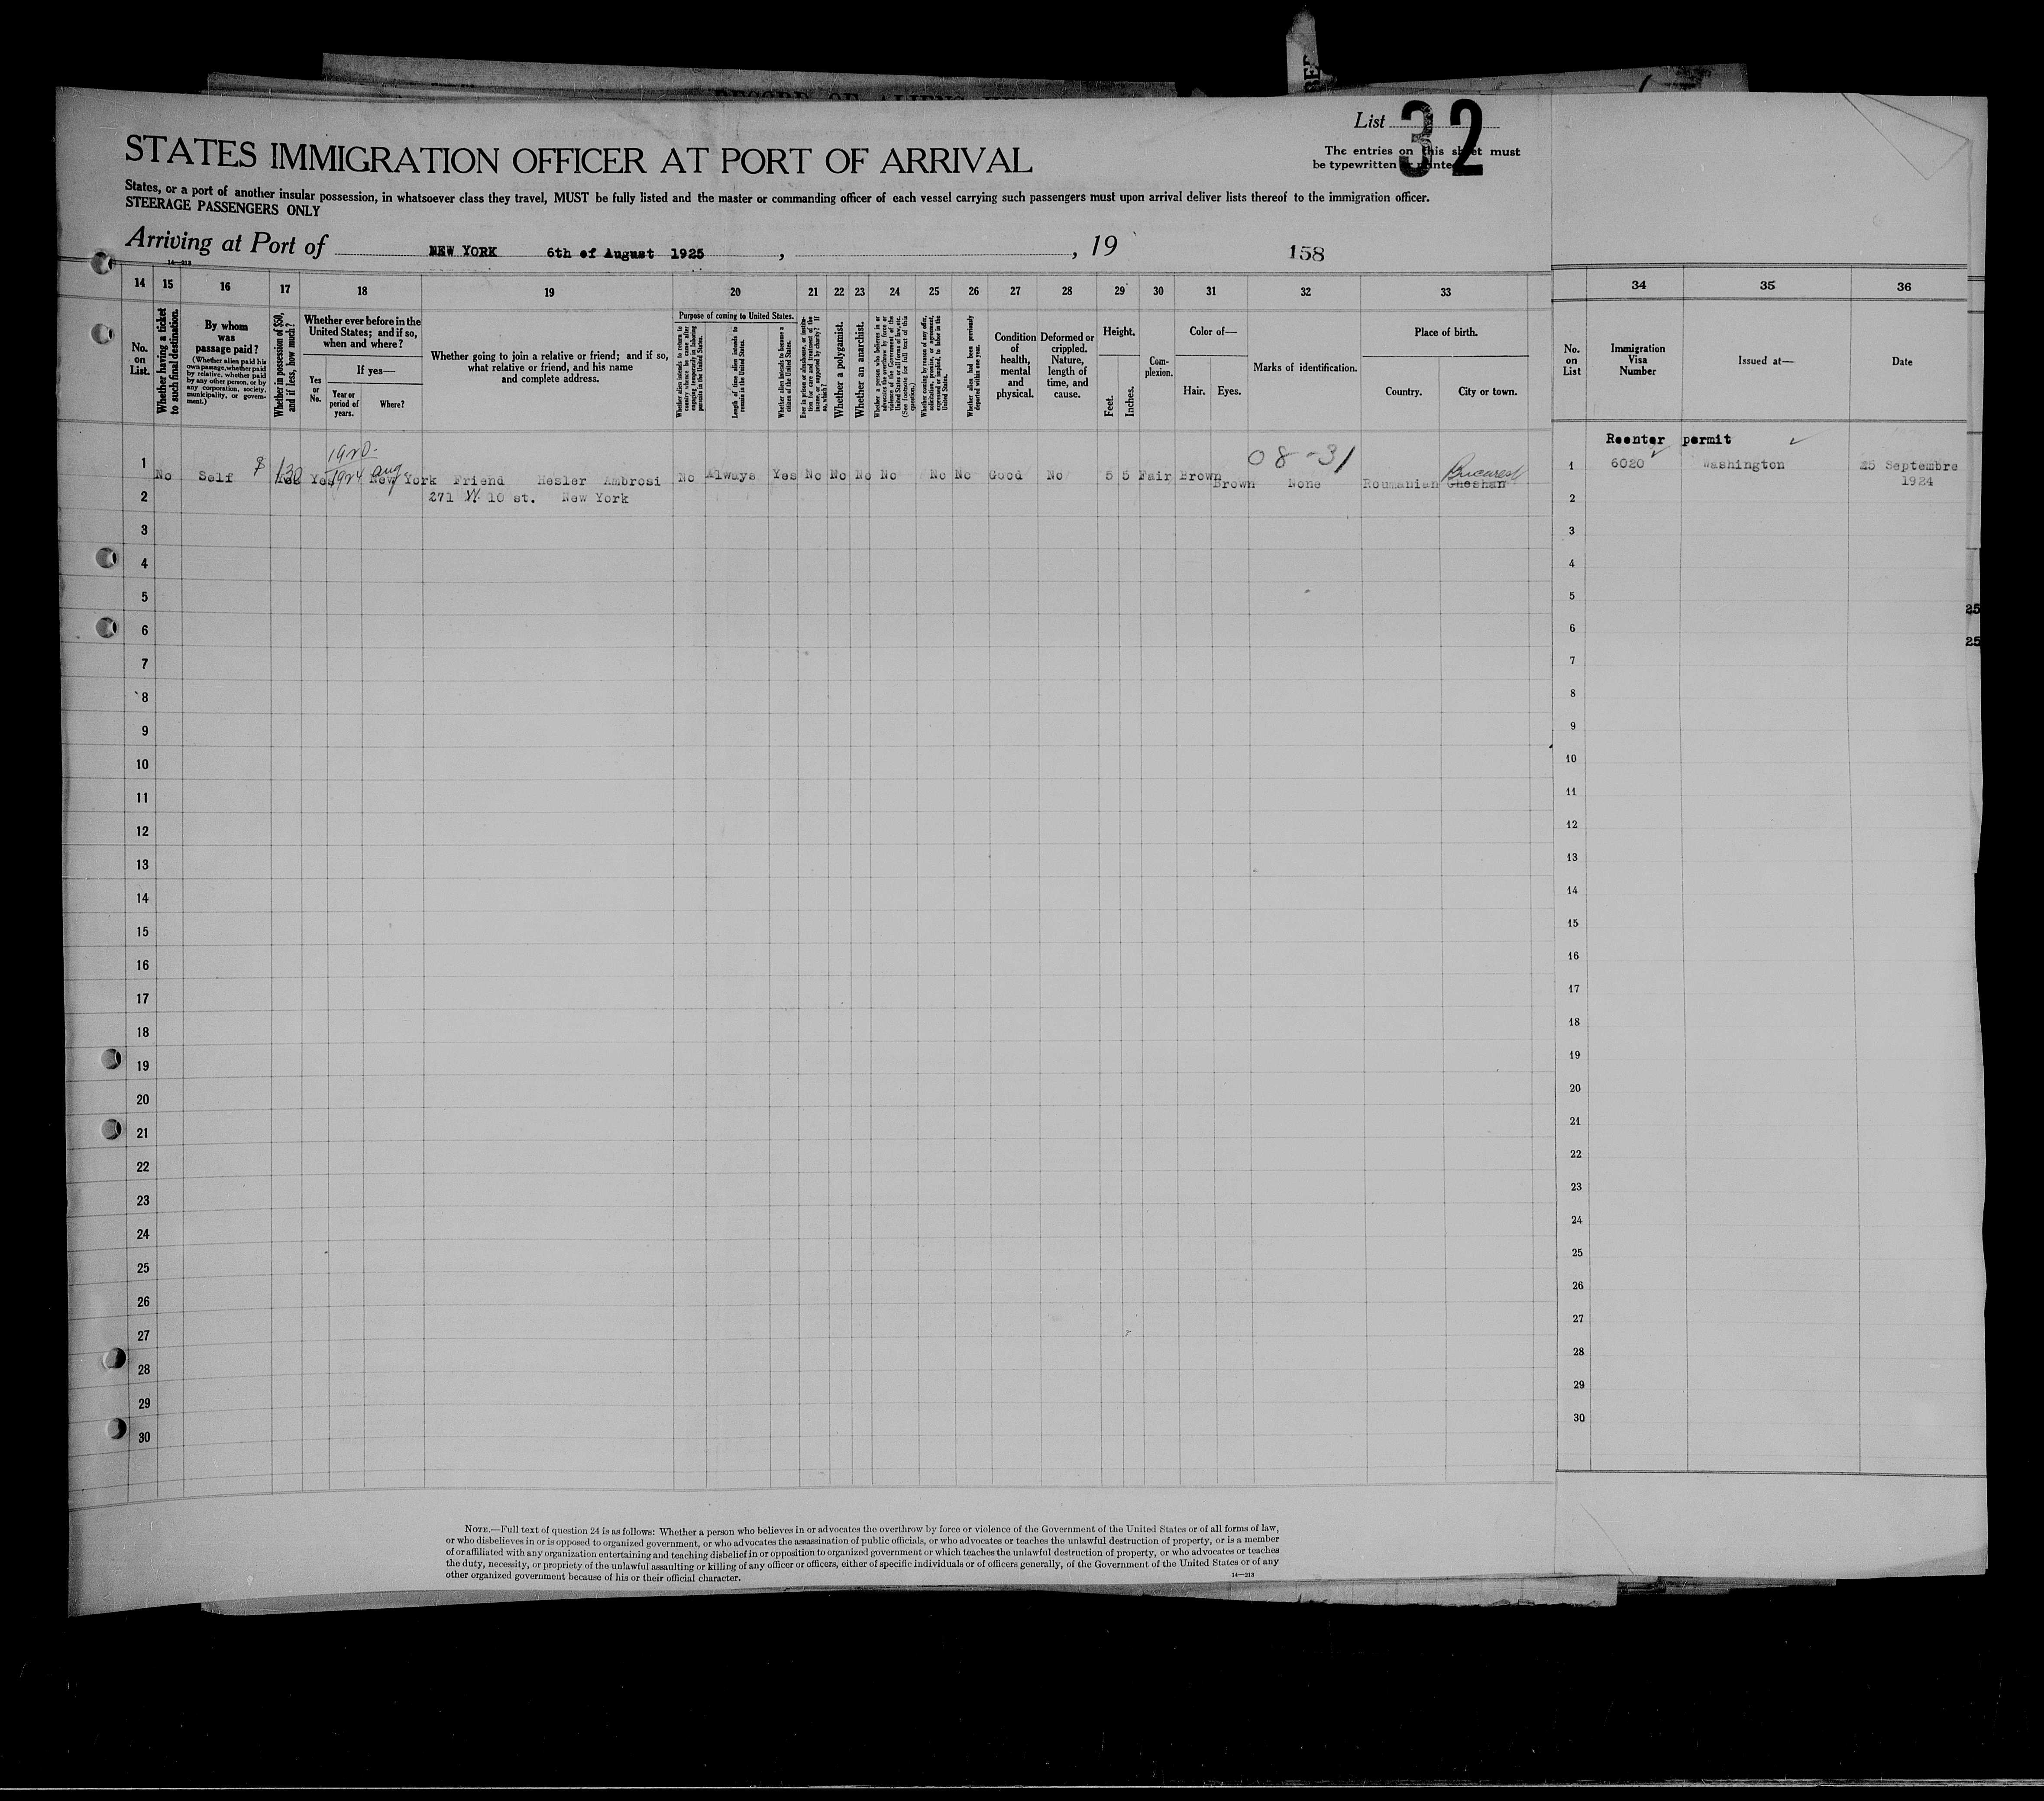 List 32
The entries on this sheet must
be typewritten or printed.
STATES IMMIGRATION OFFICER AT PORT OF ARRIVAL
States, or a port of another insular possession, in whatsoever class they travel, MUST be fully listed and the master or commanding officer of each vessel carrying such passengers must upon arrival deliver lists thereof to the immigration officer.
STEERAGE PASSENGERS ONLY
Arriving at Port of NEW YORK 6th of August 1925, , 19
158
14—213
14 15 16 17 18 19 20 21 22 23 24 25 26 27 28 29 30 31 32 33 34 35 36
No. on List.
Whether having a ticket to such final destination.
By whom was passage paid?
(Whether alien paid his own passage, whether paid by relative, whether paid by any other person, or by any corporation, society, municipality, or government.)
Whether in possession of $50, and if less, how much?
Whether ever before in the United States; and if so, when and where?
If yes—
Yes or No.
Year or period of years.
Where?
Whether going to join a relative or friend; and if so, what relative or friend, and his name and complete address.
Purpose of coming to United States.
Whether alien intends to return to country whence he came after engaging temporarily in laboring pursuits in the United States.
Length of time alien intends to remain in the United States.
Whether alien intends to become a citizen of the United States.
Ever in prison or almshouse, or institution for care and treatment of the insane, or supported by charity? If so, which?
Whether a polygamist.
Whether an anarchist.
Whether a person who believes in or advocates the overthrow by force or violence of the Government of the United States or all forms of law, etc. (See footnote for full text of this question.)
Whether coming by reason of any offer, solicitation, promise, or agreement, expressed or implied, to labor in the United States.
Whether alien had been previously deported within one year.
Condition of health, mental and physical.
Deformed or crippled. Nature, length of time, and cause.
Height.
Feet.
Inches.
Complexion.
Color of—
Hair.
Eyes.
Marks of identification.
Place of birth.
Country.
City or town.
No. on List
Immigration Visa Number
Issued at—
Date
1920.
08-31
Reenter permit
1 No Self $ 130 Yes 1924 aug. New York Friend Hesler Ambrosi No Always Yes No No No No No No Good No 5 5 Fair Brown Brown None Roumanian Gheshan Bucarest 1 6020 Washington 25 Septembre
2 271 W. 10 st. New York 2 1924
3 3
4 4
5 5
6 6
7 7
8 8
9 9
10 10
11 11
12 12
13 13
14 14
15 15
16 16
17 17
18 18
19 19
20 20
21 21
22 22
23 23
24 24
25 25
26 26
27 27
28 28
29 29
30 30
25
25
NOTE.—Full text of question 24 is as follows: Whether a person who believes in or advocates the overthrow by force or violence of the Government of the United States or of all forms of law,
or who disbelieves in or is opposed to organized government, or who advocates the assassination of public officials, or who advocates or teaches the unlawful destruction of property, or is a member
of or affiliated with any organization entertaining and teaching disbelief in or opposition to organized government or which teaches the unlawful destruction of property, or who advocates or teaches
the duty, necessity, or propriety of the unlawful assaulting or killing of any officer or officers, either of specific individuals or of officers generally, of the Government of the United States or of any
other organized government because of his or their official character.
14—213